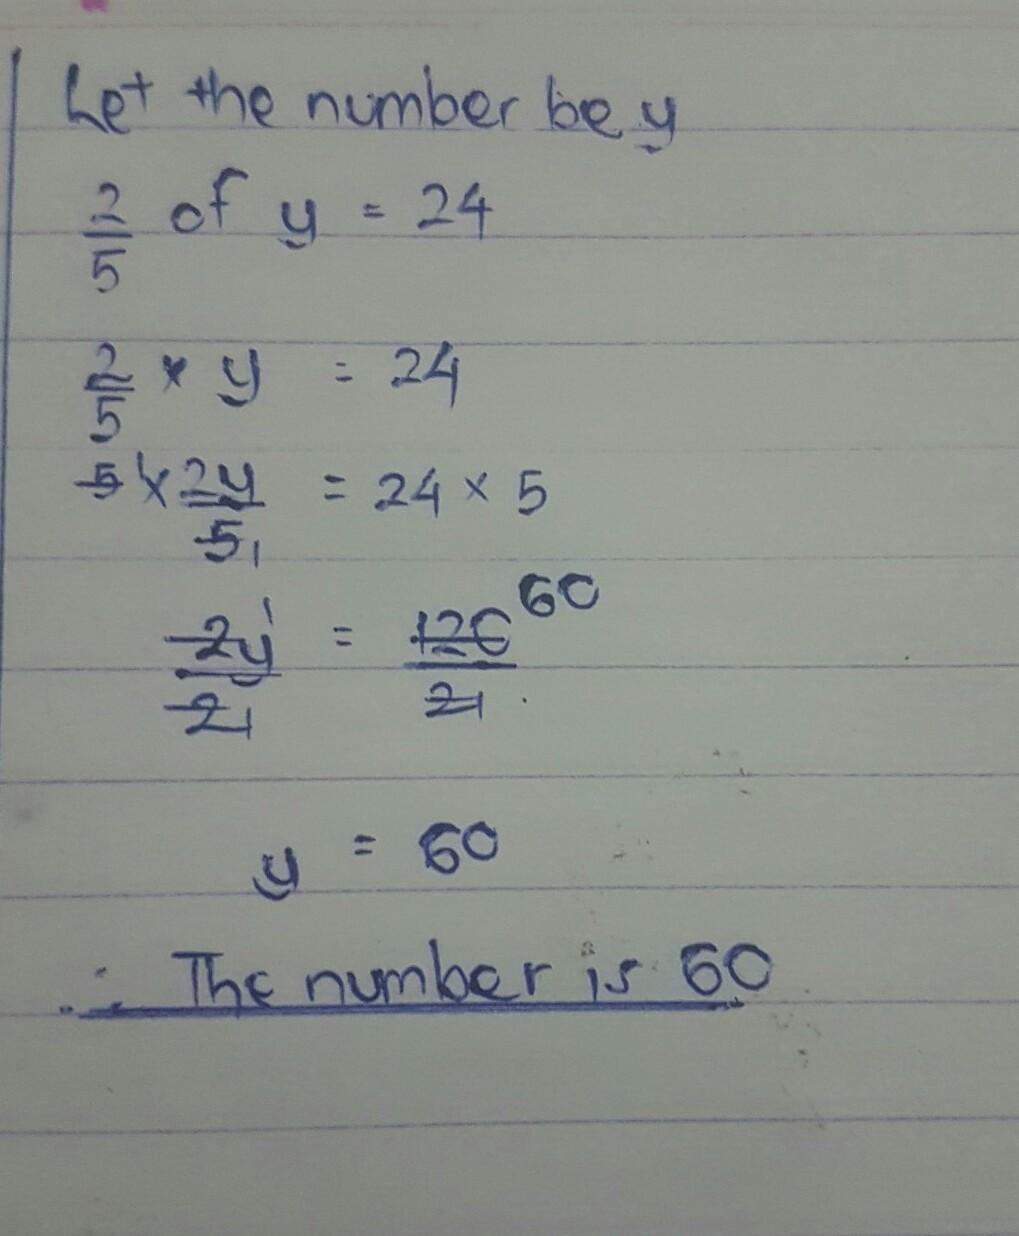 Let the number be y
2/5 of y = 24
2/5 × y = 24
5 × 2y/5 1 = 24 × 5
2y 1/2 1 = 120 60/2 1
y = 60
∴ The number is 60